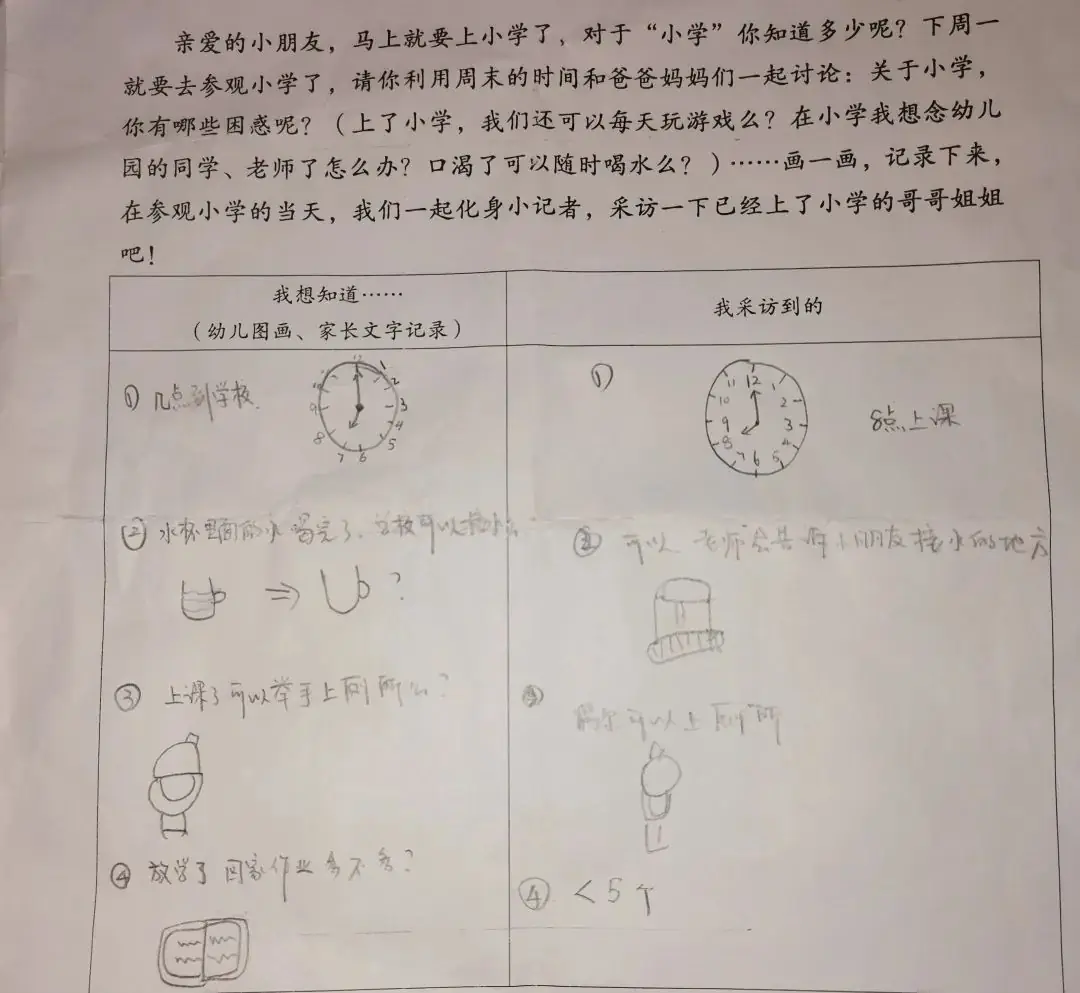 亲爱的小朋友，马上就要上小学了，对于“小学”你知道多少呢？下周一
就要去参观小学了，请你利用周末的时间和爸爸妈妈们一起讨论：关于小学，
你有哪些困惑呢？（上了小学，我们还可以每天玩游戏么？在小学我想念幼儿
园的同学、老师了怎么办？口渴了可以随时喝水么？）……画一画，记录下来，
在参观小学的当天，我们一起化身小记者，采访一下已经上了小学的哥哥姐姐
吧！
我想知道……
（幼儿图画、家长文字记录）
我采访到的
① 几点到学校
12 1 2 3 4 5 6 7 8 9
①
12 1 2 3 4 5 6 7 8 9 10 11
8点上课
② 水杯里面的水喝完了，学校可以接水么
？
② 可以 老师会告诉小朋友接水的地方
③ 上课了可以举手上厕所么？
③
偶尔可以上厕所
④ 放学了回家作业多不多？
④ <5个